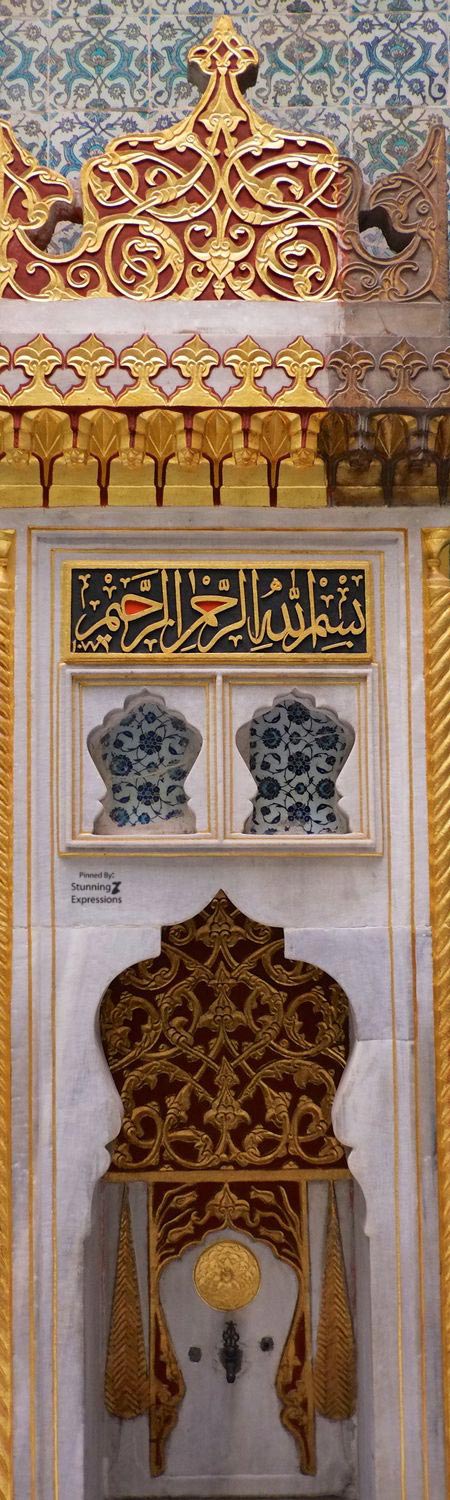 بِسْمِ اللهِ الرَّحْمٰنِ الرَّحِيْمِ
١٠٧٧
Pinned By:
Stunning
Expressions